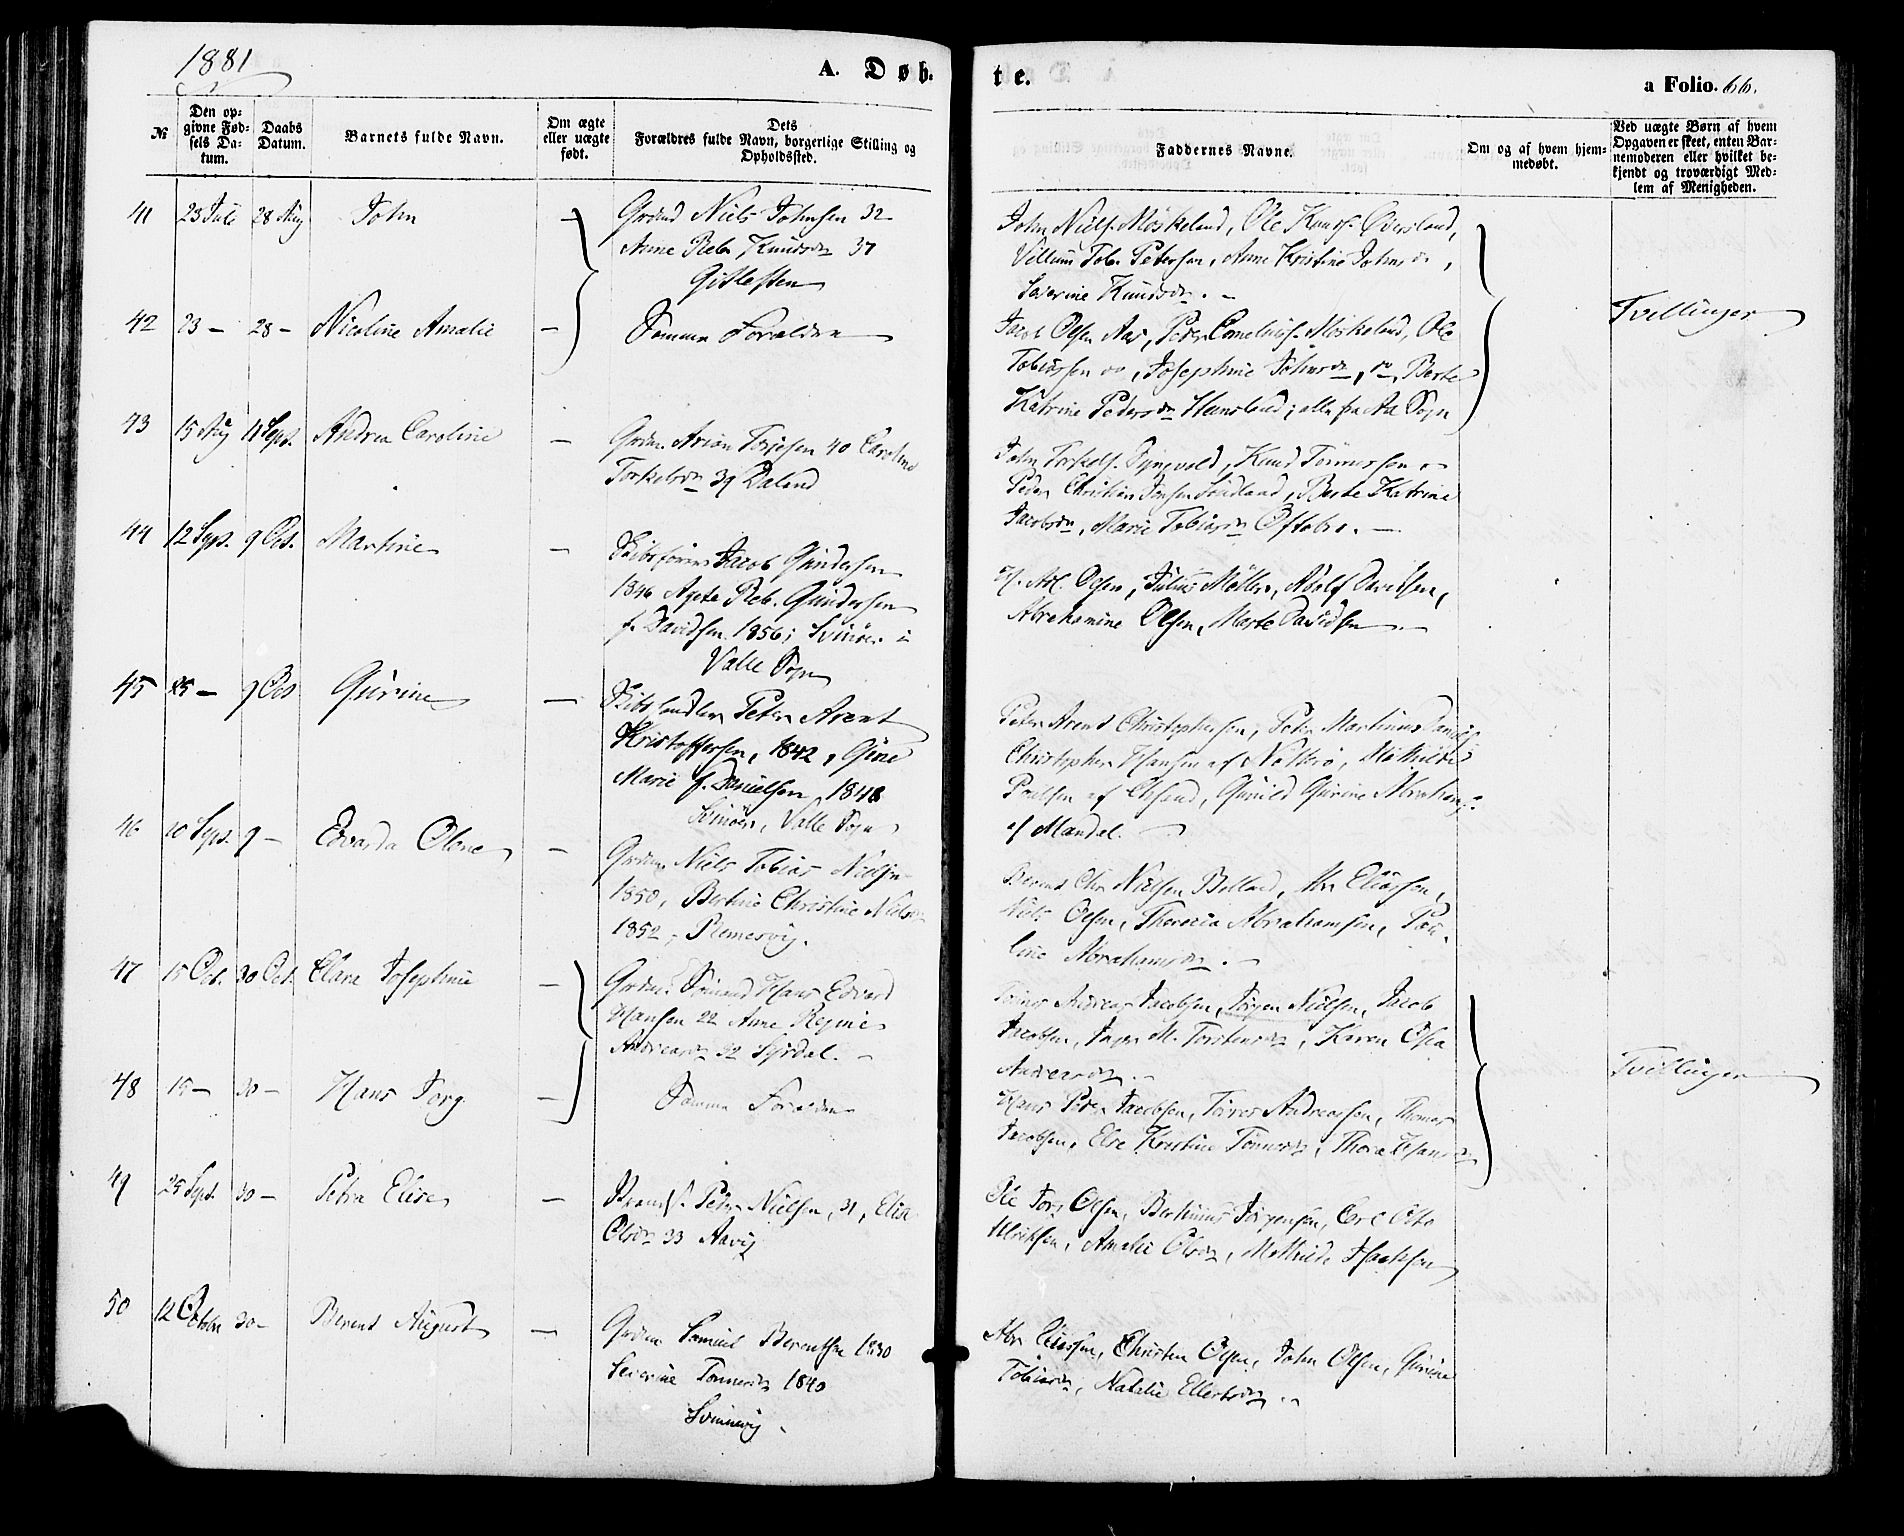 1881
A. Døb-
te.
a Folio. 66.
№
Den op-
givne Fød-
sels Da-
tum.
Daabs
Datum.
Barnets fulde Navn.
Om ægte
eller uægte
født.
Dets
Forældres fulde Navn, borgerlige Stilling og
Opholdssted.
Faddernes Navne.
Om og af hvem hjem-
medøbt.
Ved uægte Børn af hvem
Opgaven er skeet, enten Bar-
nemoderen eller hvilket be-
kjendt og troværdigt Med-
lem af Menigheden.
41 23 Juli 28 Aug John —
Niels Johnsen 32
Anne Reb. Knudsdr 37
John Niels. Møskeland, Ole Knuds. Øversland,
Villum Tob. Petersen, Anne Kristine Johnsdr,
Severine Knudsdr. —
42 23 — 28 — Nicoline Amalie —
Samme Forældre
Jacob Olsen Aas, Peder Cornelius. Møskeland, Ole
Tobiassen do, Josephine Johnsdr, do, Berte
Katrine Pedersdr; alle fra Aa Sogn
Tvillinger
43 15 Aug 11 Sept. Andrea Caroline —
Arion Torjesen 40 Caroline
Torkelsdr 39 Daland
John Torkels., Knud Tønnessen do
Peder Christian Jensen, Berte Katrine
Jacobsdr, Marie Tobiasdr Oftebro. —
44 12 Sept. 9 Oct. Martine —
Skibsfører Jacob Gundersen
1846 Agete Reb. Gundersen
f. Davidsen 1856; Svinør i
Valle Sogn
Olsen, Julius Møller, Adolf Davidsen,
Abrahamine Olsen, Marte Davidsen
45 25 — 9 Oct Gurine —
Skibshandler Peter Arent
Kristoffersen, 1842, Gine
Marie f. Danielsen 1848
Svinør, Valle Sogn
Peter Arend Christophersen, Peter Martinus Daniels.
Christopher Hansen af, Mathilde
Poulsen af, Gunild Gurine Abrahams.
af Mandal.
46 10 Sept. 9 — Edvarda Olene —
Niels Tobias Nielsen
1850, Bertine Christine Nielsdr
1852; Remesvig.
Berend Chr Nielsen, Abr Eliassen,
Niels Olsen, Theresia Abrahamsen, Pau-
line Abrahamsdr. —
47 15 Oct. 30 Oct. Clara Josephine —
Sømand Hans Edvard
Hansen 22 Anne Regine
Andreasdr 32 Syrdal. —
Andreas Jacobsen, Jørgen Nielsen, Jacob
Jacobsen, Inger M. Torstensdr, Karen Olea
Andreasdr. —
48 15 — 30 — Hans Jørg. —
Samme Forældre
Hans Peder Jacobsen, Andreassen, Thomas
Jacobsen, Else Kristine Tønnesdr, Thora Hansdr
Tvillinger
49 25 Sept. 30 — Petra Elise —
Peter Nielsen, 31, Elise
Olsdr 33 Aavig
Ole Olsen, Bertinius Jørgensen, Carl Otto
Ulriksen, Amalie Olsdr, Mathilde Isaksen
50 12 Octobr 30 — Berent August —
Samuel Berentsen 1830
Severine Tønnesdr 1840
Svinevig
Abr Eliassen, Christen Olsen, John Olsen, Gurine
Tobiasdr, Natalie Ellertsdr.